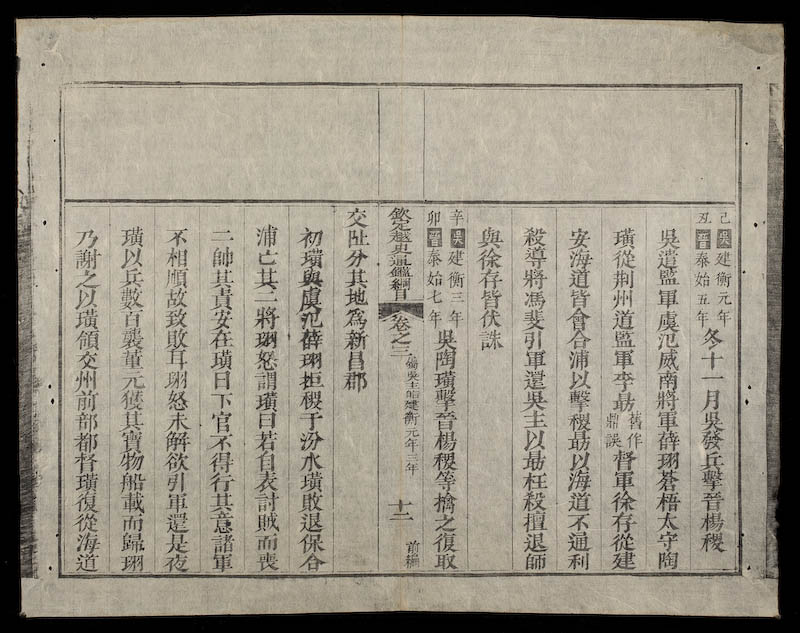 己丑吳建衡元年晉泰始五年冬十一月吳發兵擊晉楊稷
吳遣監軍虞汜威南將軍薛珝蒼梧太守陶
璜從荆州道監軍李勗舊作鼎誤督軍徐存從建
安海道皆會合浦以擊稷勗以海道不通利
殺導將馮斐引軍還吳主以勗枉殺擅退師
與徐存皆伏誅
辛卯吳建衡三年晉泰始七年吳陶璜擊晉楊稷等擒之復取
欽定越史通鑑綱目卷之三屬吳主皓建衡元年三年十二前編
交阯分其地爲新昌郡
初璜與虞汜薛珝拒稷于汾水璜敗退保合
浦亡其二將珝怒謂璜曰若自表討賊而喪
二帥其責安在璜曰下官不得行其意諸軍
不相順故致敗耳珝怒未解欲引軍還是夜
璜以兵數百襲董元獲其寶物船載而歸珝
乃謝之以璜領交州前部都督璜復從海道